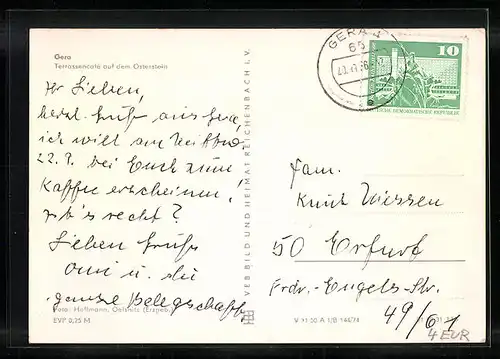 Gera
Terrassencafé auf dem Osterstein
Ihr Lieben,
herzl. Grüße aus Gera,
ich will am
22. 7. bei Euch zum
Kaffee erscheinen!
Ist's recht?
Lieben Grüße
Omi u. die
ganze Belegschaft
Foto: Hoffmann, Oelsnitz (Erzgeb.)
EVP 0,25 M
VEB BILD UND HEIMAT REICHENBACH i. V.
GERA 4
65
10
DEUTSCHE DEMOKRATISCHE REPUBLIK
Fam.
Knut
50 Erfurt
Frdr.-Engels-Str.
49/67
4 EUR